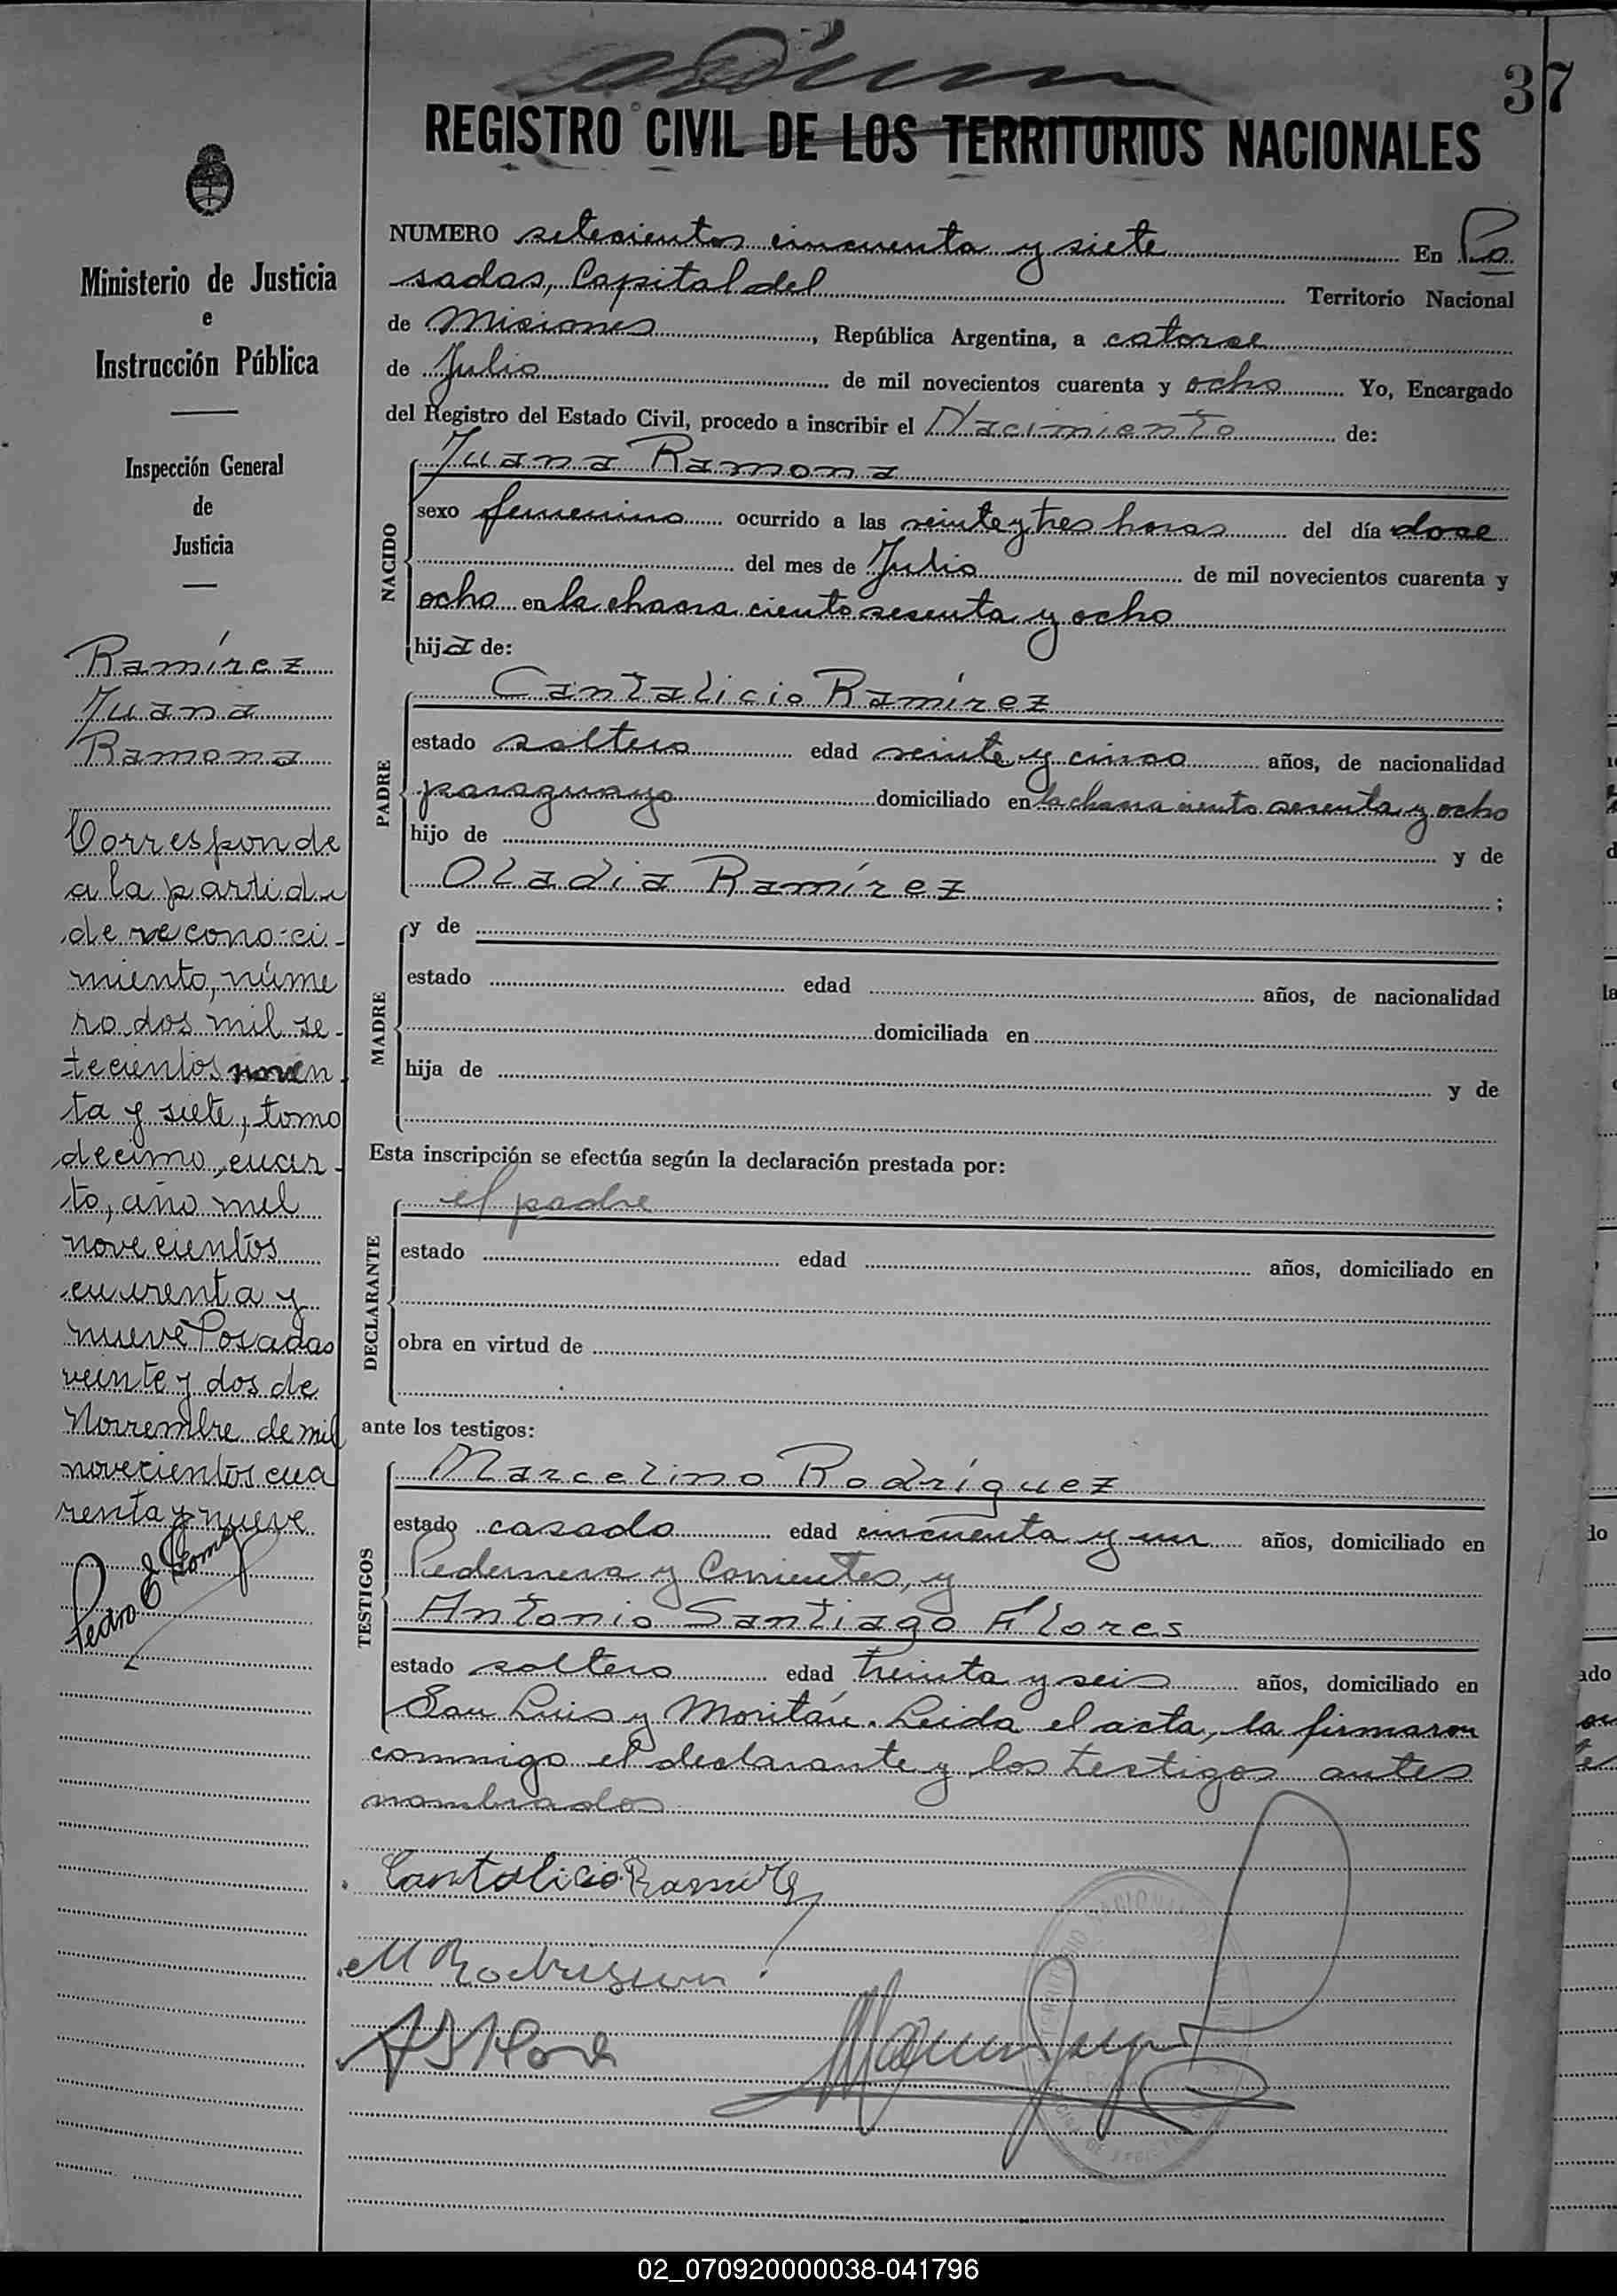 37
REGISTRO CIVIL DE LOS TERRITORIOS NACIONALES
Ministerio de Justicia
e
Instrucción Pública
Inspección General
de
Justicia
Ramírez
Juana
Ramona
Corresponde
a la partida
de reconoci-
miento, núme
ro dos mil se-
tecientos noven
ta y siete, tomo
decimo, cuar-
to, año mil
novecientos
cuarenta y
nueve Posadas
veinte y dos de
Noviembre de mil
novecientos cua
renta y nueve
Pedro E Gomez
NUMERO setecientos cincuenta y siete En Po
sadas, Capital del Territorio Nacional
de Misiones, República Argentina, a catorce
de Julio de mil novecientos cuarenta y ocho Yo, Encargado
del Registro del Estado Civil, procedo a inscribir el Nacimiento de:
NACIDO
Juana Ramona
sexo femenino ocurrido a las veinte y tres horas del día doce
del mes de Julio de mil novecientos cuarenta y
ocho en la chacra ciento sesenta y ocho
hija de:
PADRE
Cantalicio Ramírez
estado soltero edad veinte y cinco años, de nacionalidad
paraguayo domiciliado en la chacra ciento sesenta y ocho
hijo de y de
Oladia Ramírez ;
MADRE
y de
estado edad años, de nacionalidad
domiciliada en
hija de y de
Esta inscripción se efectúa según la declaración prestada por:
DECLARANTE
el padre
estado edad años, domiciliado en
obra en virtud de
ante los testigos:
TESTIGOS
Marcelino Rodríguez
estado casado edad cincuenta y un años, domiciliado en
Pedernera y Corrientes, y
Antonio Santiago Flores
estado soltero edad treinta y seis años, domiciliado en
San Luis y Moritán. Leida el acta, la firmaron
conmigo el declarante y los testigos antes
nombrados
Cantalicio Ramirez
M Rodriguez
A S Flores
02_070920000038-041796